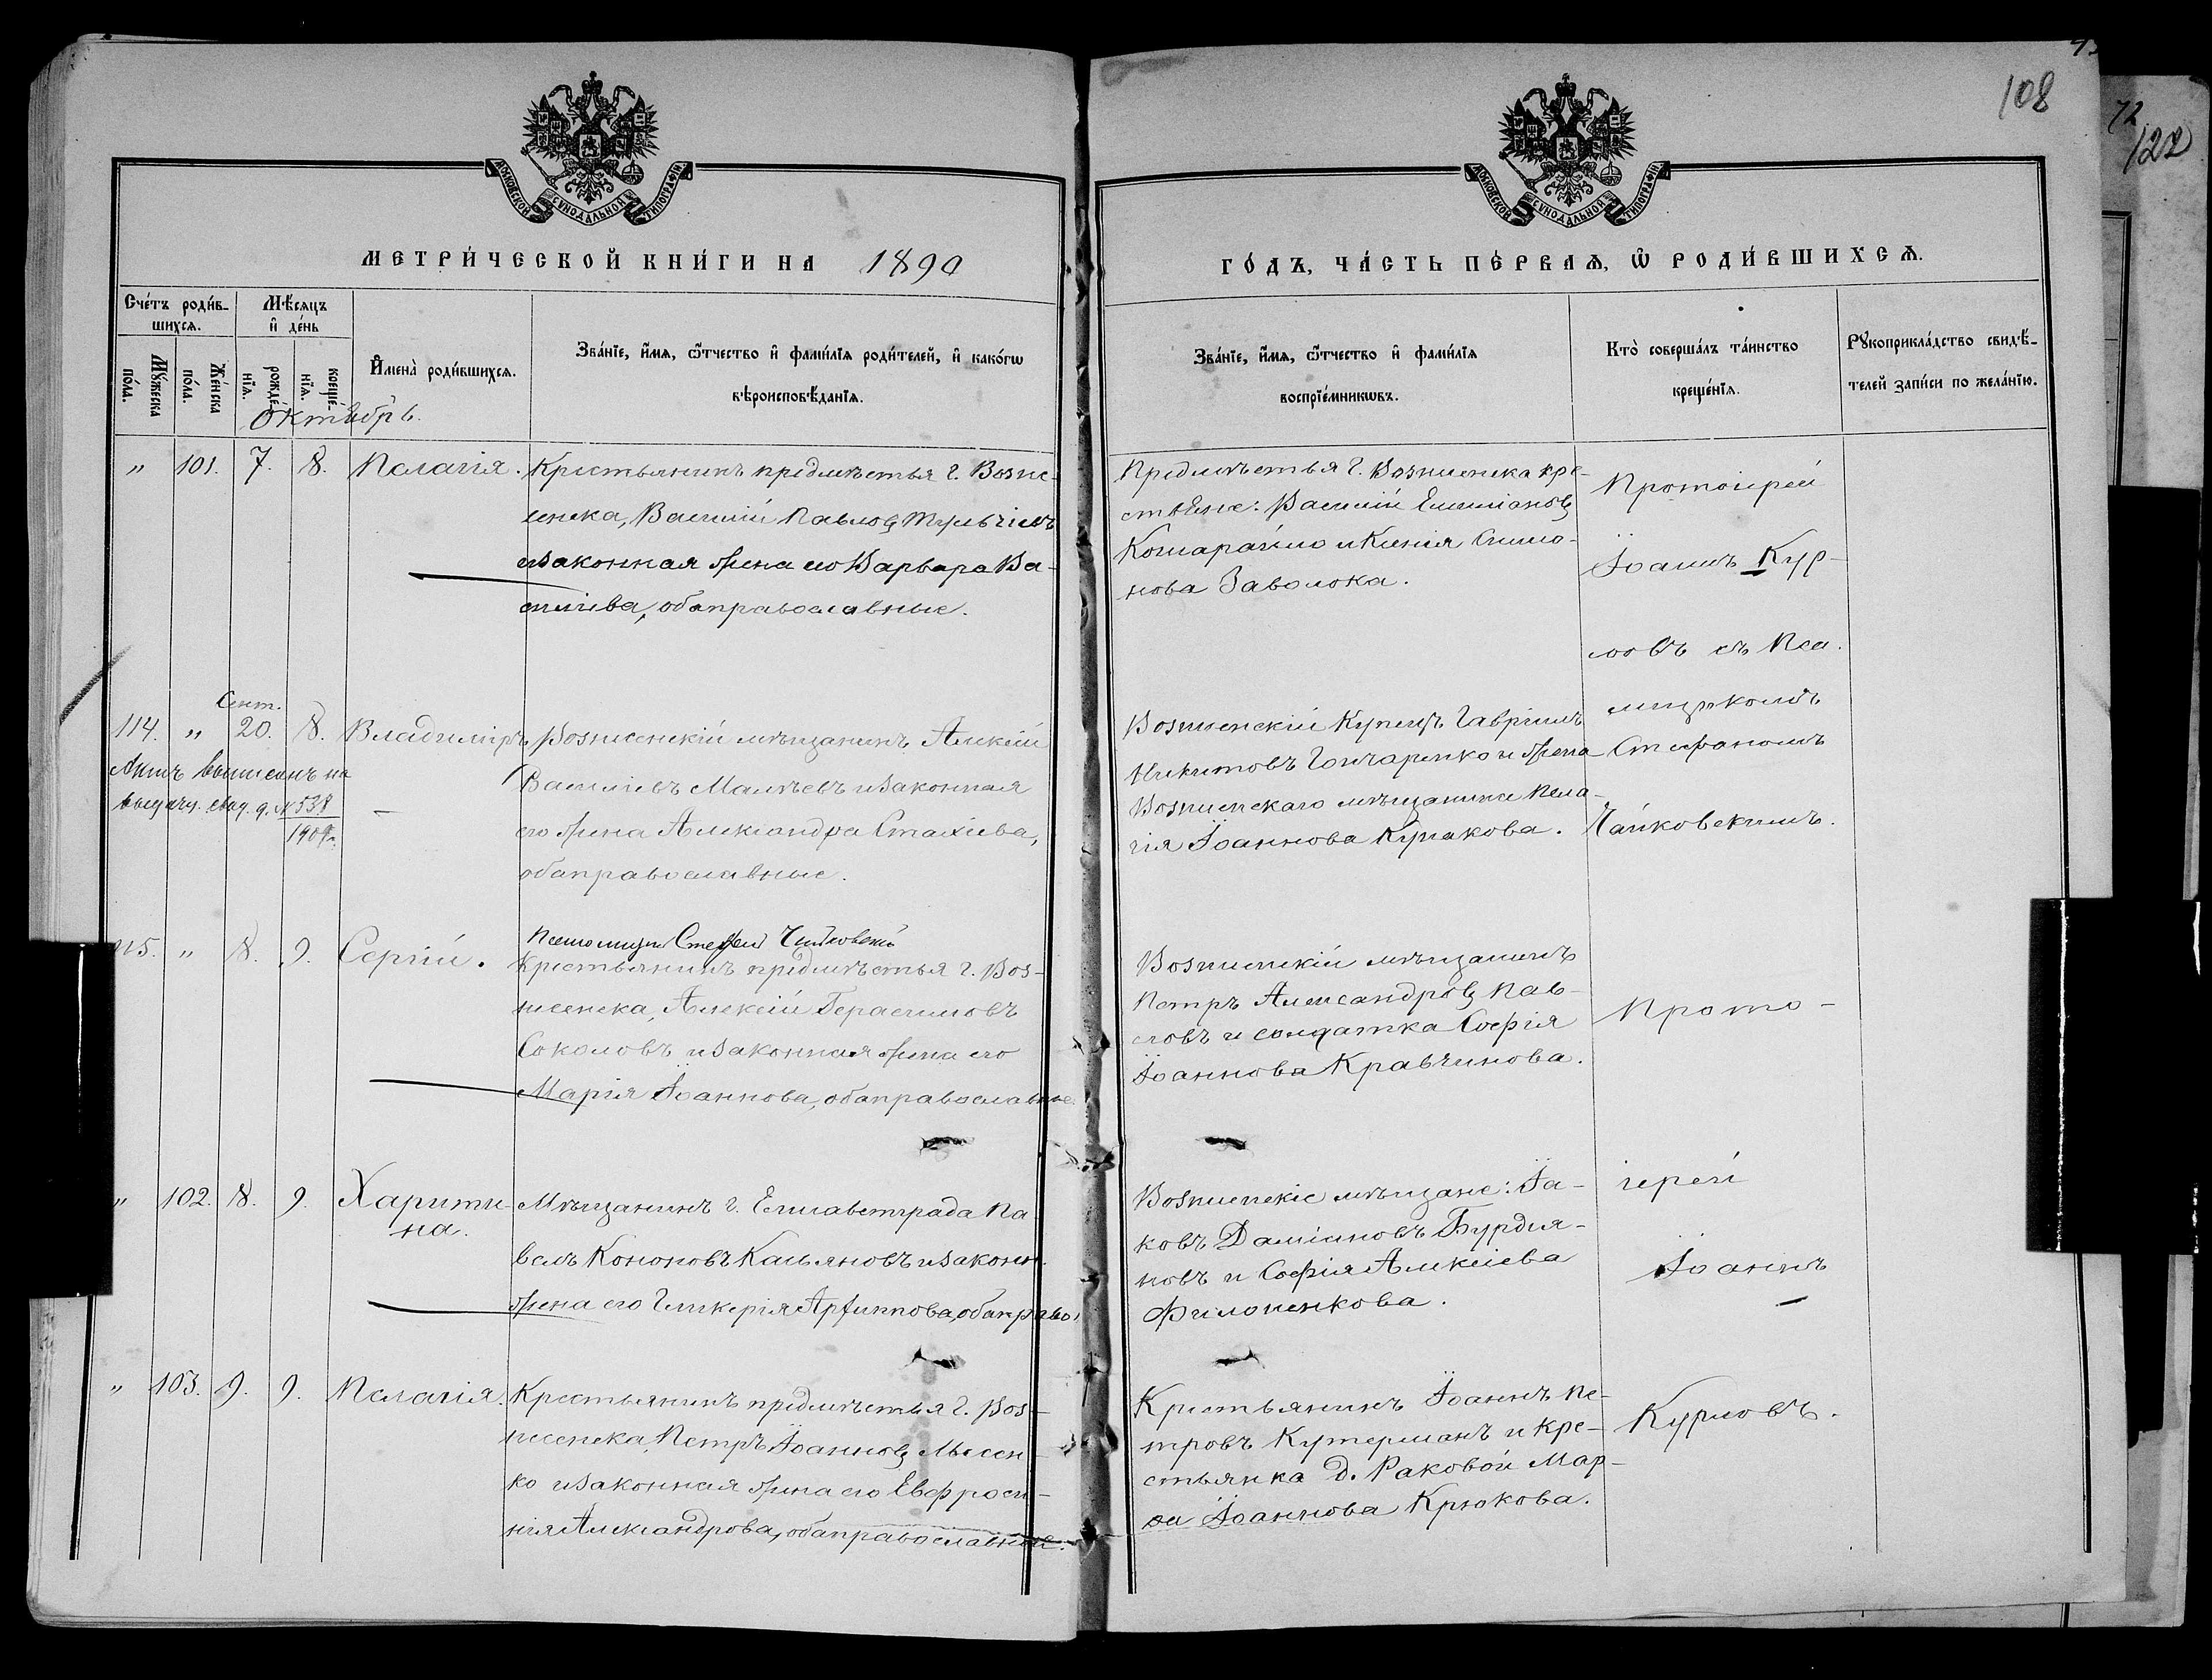 108
72
122
МОСКОВСКОЙ СУНОДАЛЬНОЙ ТИПОГРАФІИ
МОСКОВСКОЙ СУНОДАЛЬНОЙ ТИПОГРАФІИ
МЕТРИ́ЧЕСКОЙ КНИ́ГИ НА 1890
ГО́ДЪ, ЧА́СТЬ ПЕ́РВАѦ, Ѡ҆ РОДИ́ВШИХСѦ.
Сче́тъ роди́в-
шихсѧ.
Мꙋ́жеска
по́ла.
Же́нска
по́ла.
Мѣ́сѧцъ
и҆ де́нь
рожде́-
нїѧ.
креще́-
нїѧ.
И҆мена̀ роди́вшихсѧ.
Зва́нїе, и҆́мѧ, ѻ҆́тчество и҆ фами́лїѧ роди́телей, и҆ како́гѡ
вѣроисповѣ́данїѧ.
Зва́нїе, и҆́мѧ, ѻ҆́тчество и҆ фами́лїѧ
воспрїе́мникѡвъ.
Кто̀ соверша́лъ та́инство
креще́нїѧ.
Рꙋкоприкла́дство свидѣ́-
телей за́писи по жела́нїю.
Октябрь.
" 101. 7. 8. Пелагія.
Крестьянинъ предмѣстья г. Возне-
сенска, Василій Павловъ
и законная жена его Варвара Ва-
силіева, оба православные.
Предмѣстья г. Вознесенска кре-
стьяне: Василій Емиліановъ
и Ксенія Симо-
нова Заволока.
Протоіерей
Іоаннъ Кур-
ловъ съ Пса-
ломщикомъ
Стефаномъ
Чайковскимъ.
Сент.
114. " 20. 8. Владиміръ
Актъ выписанъ на
выдачу свид. № 538
1907г.
Вознесенскій мѣщанинъ Алексій
Василіевъ Малѣевъ и законная
его жена Александра Стахіева,
оба православные.
Вознесенскій Купецъ Гавріилъ
Никитовъ Гончаренко и жена
Вознесенскаго мѣщанина Пела-
гія Іоаннова Кулакова.
115. " 8. 9. Сергій.
Псаломщикъ Стефан Чайковскій
Крестьянинъ предмѣстья г. Воз-
несенска, Алексій Герасимовъ
Соколовъ и законная жена его
Марія Іоаннова, оба православные.
Вознесенскій мѣщанинъ
Петръ Александровъ Пав-
ловъ и солдатка Софія
Іоаннова Кравчинова.
Прото-
" 102. 8. 9. Харити-
на.
Мѣщанинъ г. Елисаветграда Па-
велъ Кононовъ Касьяновъ и законн.
жена его Гликерія Архиппова, оба право.
Вознесенскіе мѣщане: Іа-
ковъ Даміановъ Бурдя-
новъ и Софія Алексіева
Филоненкова.
іерей
Іоаннъ
" 103. 9. 9. Пелагія.
Крестьянинъ предмѣстья г. Воз-
несенска, Петръ Іоанновъ Лысен-
ко и законная жена его Евфроси-
нія Александрова, оба православные.
Крестьянинъ Іоаннъ Пе-
тровъ Кутерманъ и кре-
стьянка д. Раковой Мар-
ѳа Іоаннова Крюкова.
Курловъ.